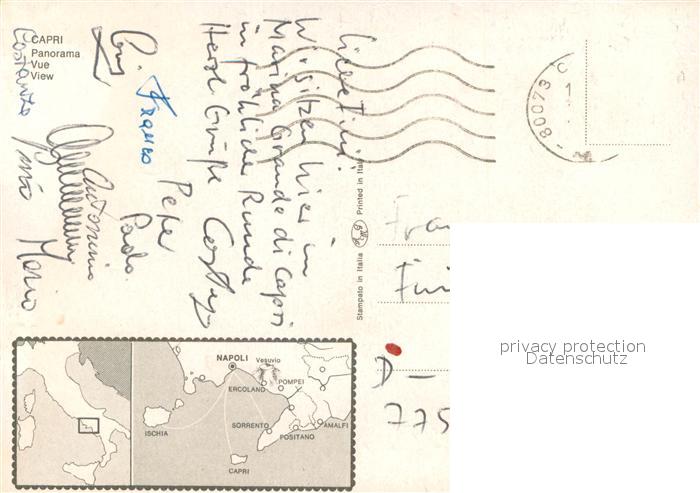 CAPRI
Panorama
Vue
View
Wir sitzen hier in
Marina Grande di Capri
in fröhlicher Runde
Herzl. Grüße
Franco
Peter
Paolo
Antonino
Mario
Costanzo
80073 C
Printed in Italy
Stampato in Italia
D -
775
privacy protection
Datenschutz
NAPOLI
Vesuvio
ERCOLANO
POMPEI
ISCHIA
SORRENTO
POSITANO
AMALFI
CAPRI